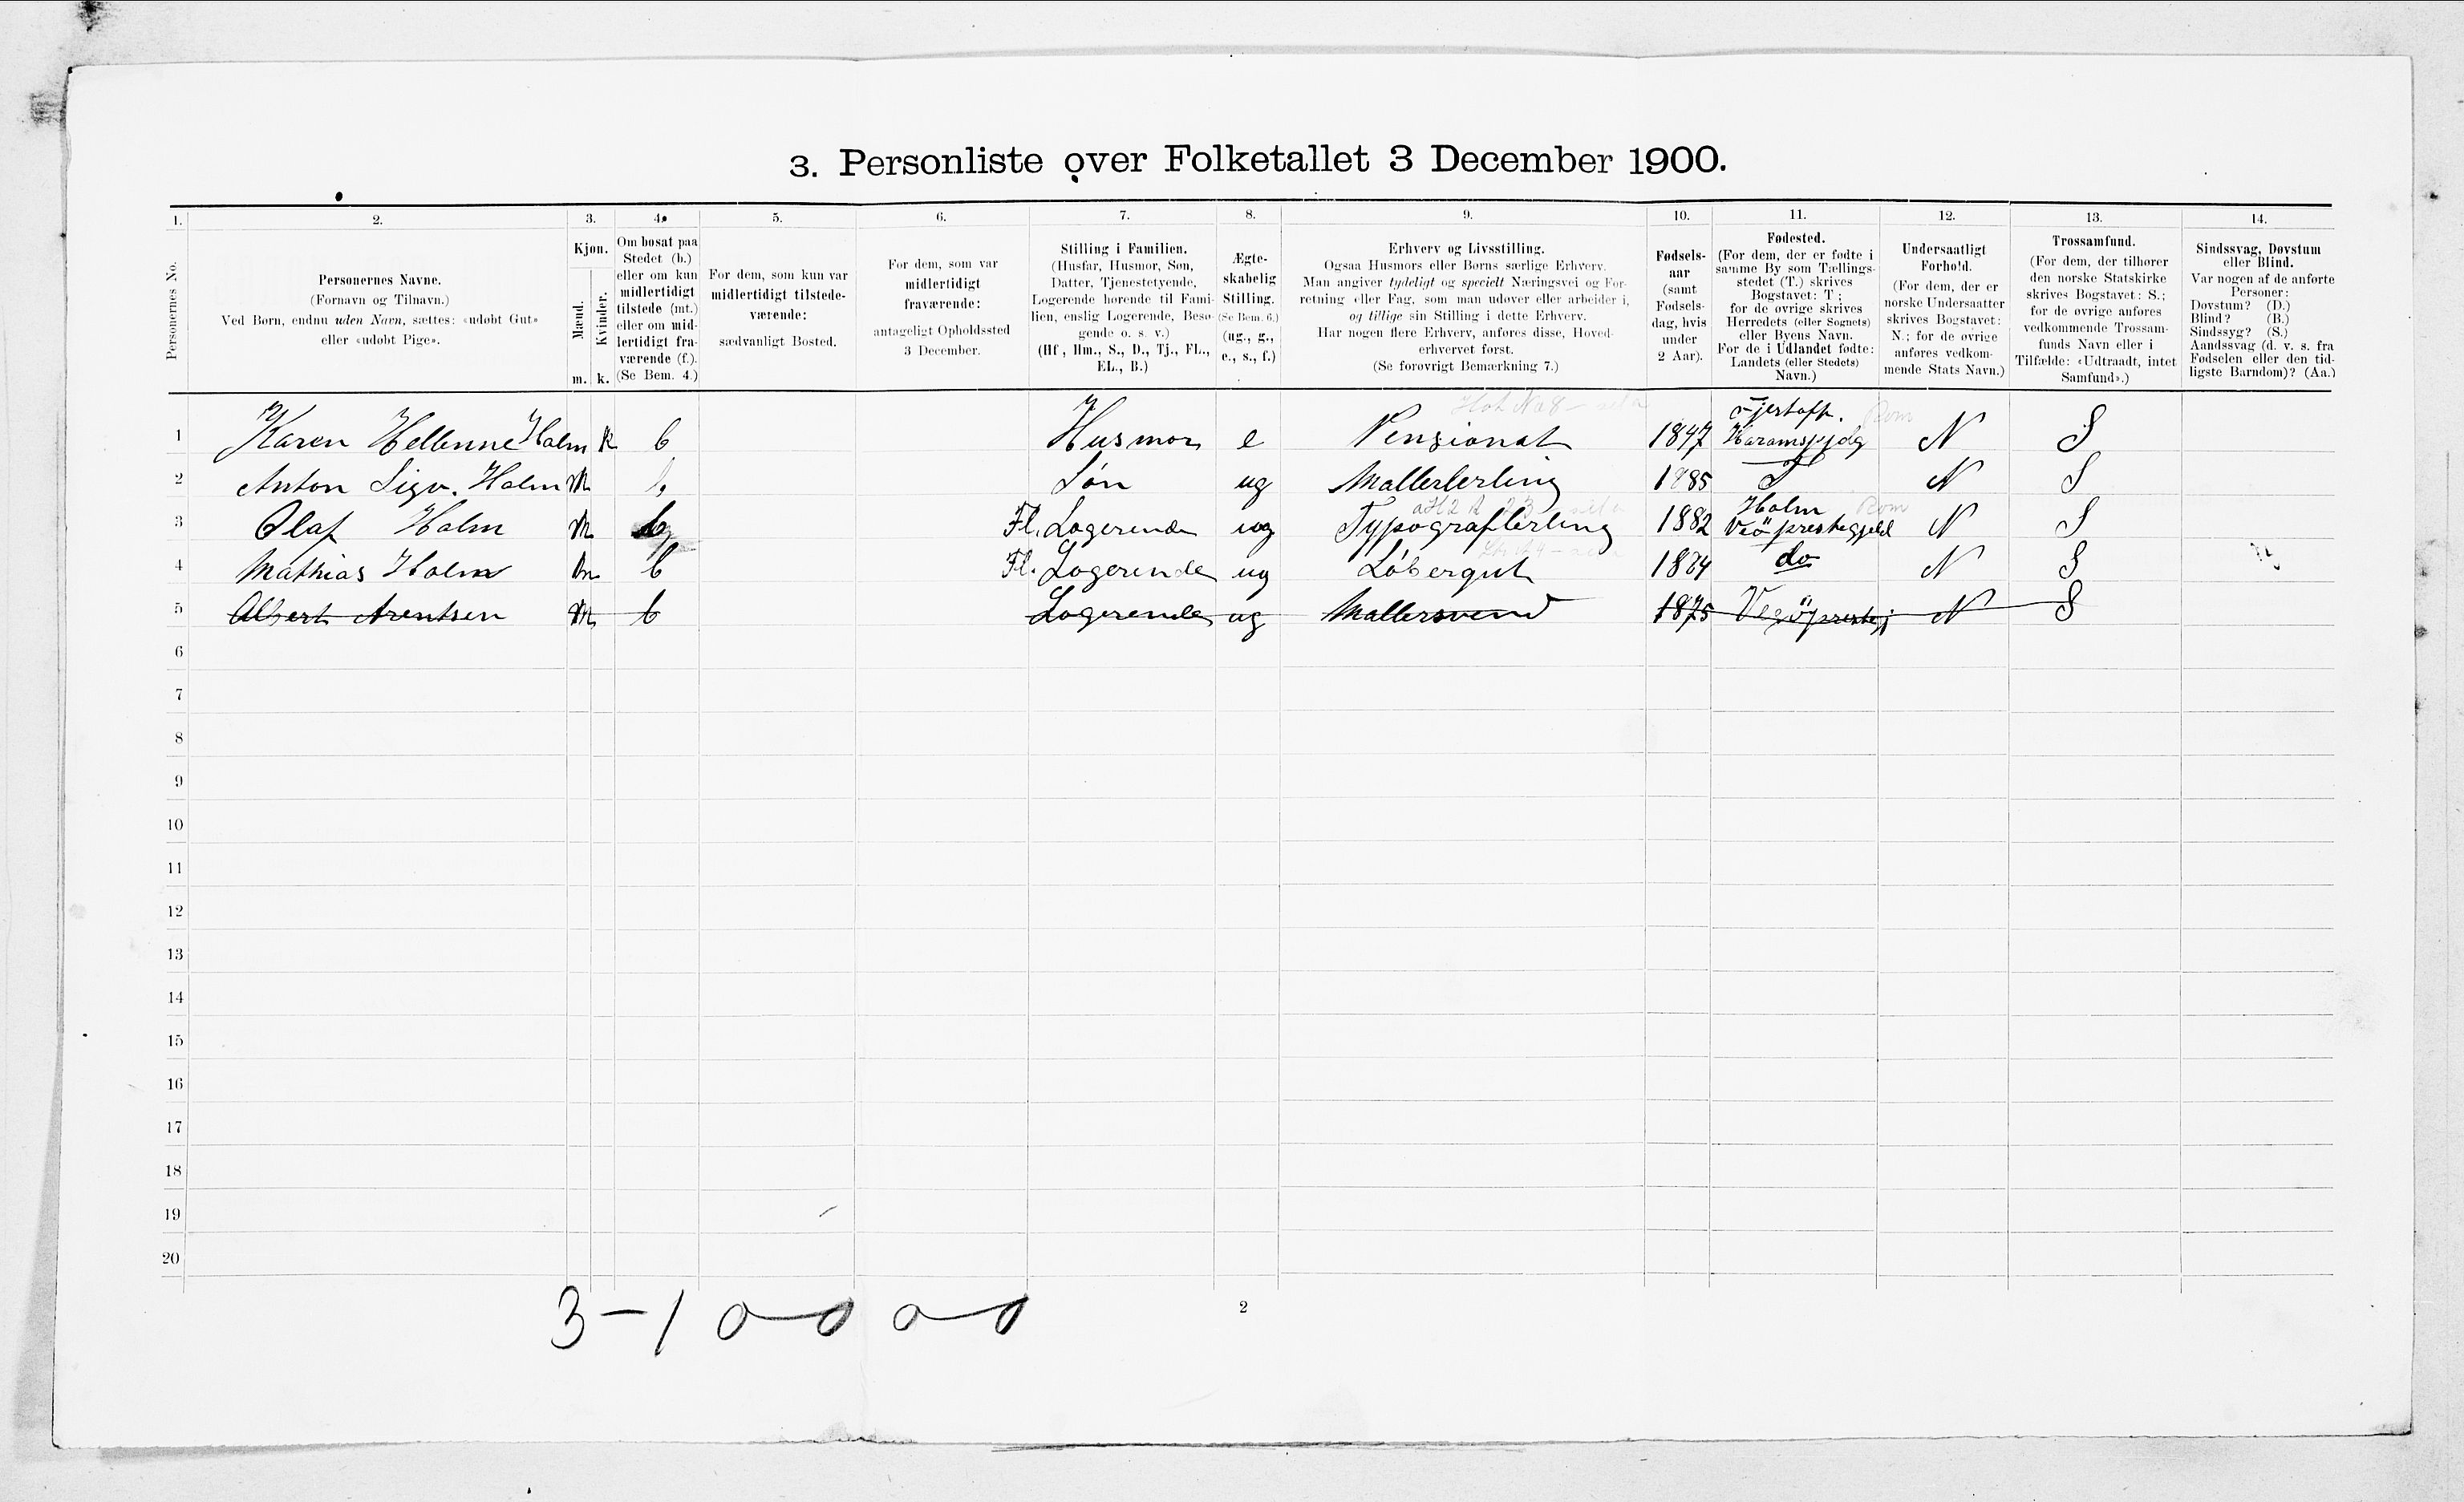 3. Personliste over Folketallet 3 December 1900.
1. 2. 3. 4. 5. 6. 7. 8. 9. 10. 11. 12. 13. 14.
Personernes No.
Personernes Navne.
(Fornavn og Tilnavn.)
Ved Børn, endnu uden Navn, sættes: «udøbt Gut»
eller «udøbt Pige».
Kjøn.
Mænd.
Kvinder.
m. k.
Om bosat paa
Stedet (b.)
eller om kun
midlertidigt
tilstede (mt.)
eller om mid-
lertidigt fra-
værende (f.).
(Se Bem. 4.)
For dem, som kun var
midlertidigt tilstede-
værende:
sædvanligt Bosted.
For dem, som var
midlertidigt
fraværende:
antageligt Opholdssted
3 December.
Stilling i Familien.
(Husfar, Husmor, Søn,
Datter, Tjenestetyende,
Logerende hørende til Fami-
lien, enslig Logerende, Besø-
gende o. s. v.)
(Hf., Hm., S., D., Tj., FL.,
EL., B.)
Ægte-
skabelig
Stilling.
(Se Bem. 6.)
(ug., g.,
e., s., f.)
Erhverv og Livsstilling.
Ogsaa Husmors eller Børns særlige Erhverv.
Man angiver tydeligt og specielt Næringsvei og For-
retning eller Fag, som man udøver eller arbeider i,
og tillige sin Stilling i dette Erhverv.
Har nogen flere Erhverv, anføres disse, Hoved-
erhvervet først.
(Se forøvrigt Bemærkning 7.)
Fødsels-
aar
(samt
Fødsels-
dag, hvis
under
2 Aar).
Fødested.
(For dem, der er fødte i
samme By som Tællings-
stedet (T.) skrives
Bogstavet: T;
for de øvrige skrives
Herredets (eller Sognets)
eller Byens Navn.
For de i Udlandet fødte:
Landets (eller Stedets)
Navn.)
Undersaatligt
Forhold.
(For dem, der er
norske Undersaatter
skrives Bogstavet:
N.; for de øvrige
anføres vedkom-
mende Stats Navn.)
Trossamfund.
(For dem, der tilhører
den norske Statskirke
skrives Bogstavet: S.;
for de øvrige anføres
vedkommende Trossam-
funds Navn eller i
Tilfælde: «Udtraadt, intet
Samfund».)
Sindssvag, Døvstum
eller Blind.
Var nogen af de anførte
Personer:
Døvstum? (D.)
Blind? (B.)
Sindssyg? (S.)
Aandssvag (d. v. s. fra
Fødselen eller den tid-
ligste Barndom)? (Aa.)
1 Karen Hellenne Holm k b Husmor e Pensionat 1847 Fjertoft. Haramspjdg Rom N S
2 Anton Sigv. Holm m b Søn ug Mallerlerling 1885 T N S
3 Olaf Holm m b Fl. Logerende ug Typograflerling 1882 Holm Veö prestegjeld Rom N S
4 Mathias Holm m b Fl. Logerende ug Löbergut 1884 do N S
5 Albert Arentsen m b Logerende ug Mallersvend 1875 N S
6
7
8
9
10
11
12
13
14
15
16
17
18
19
20
3-1 0-0 0-0
2